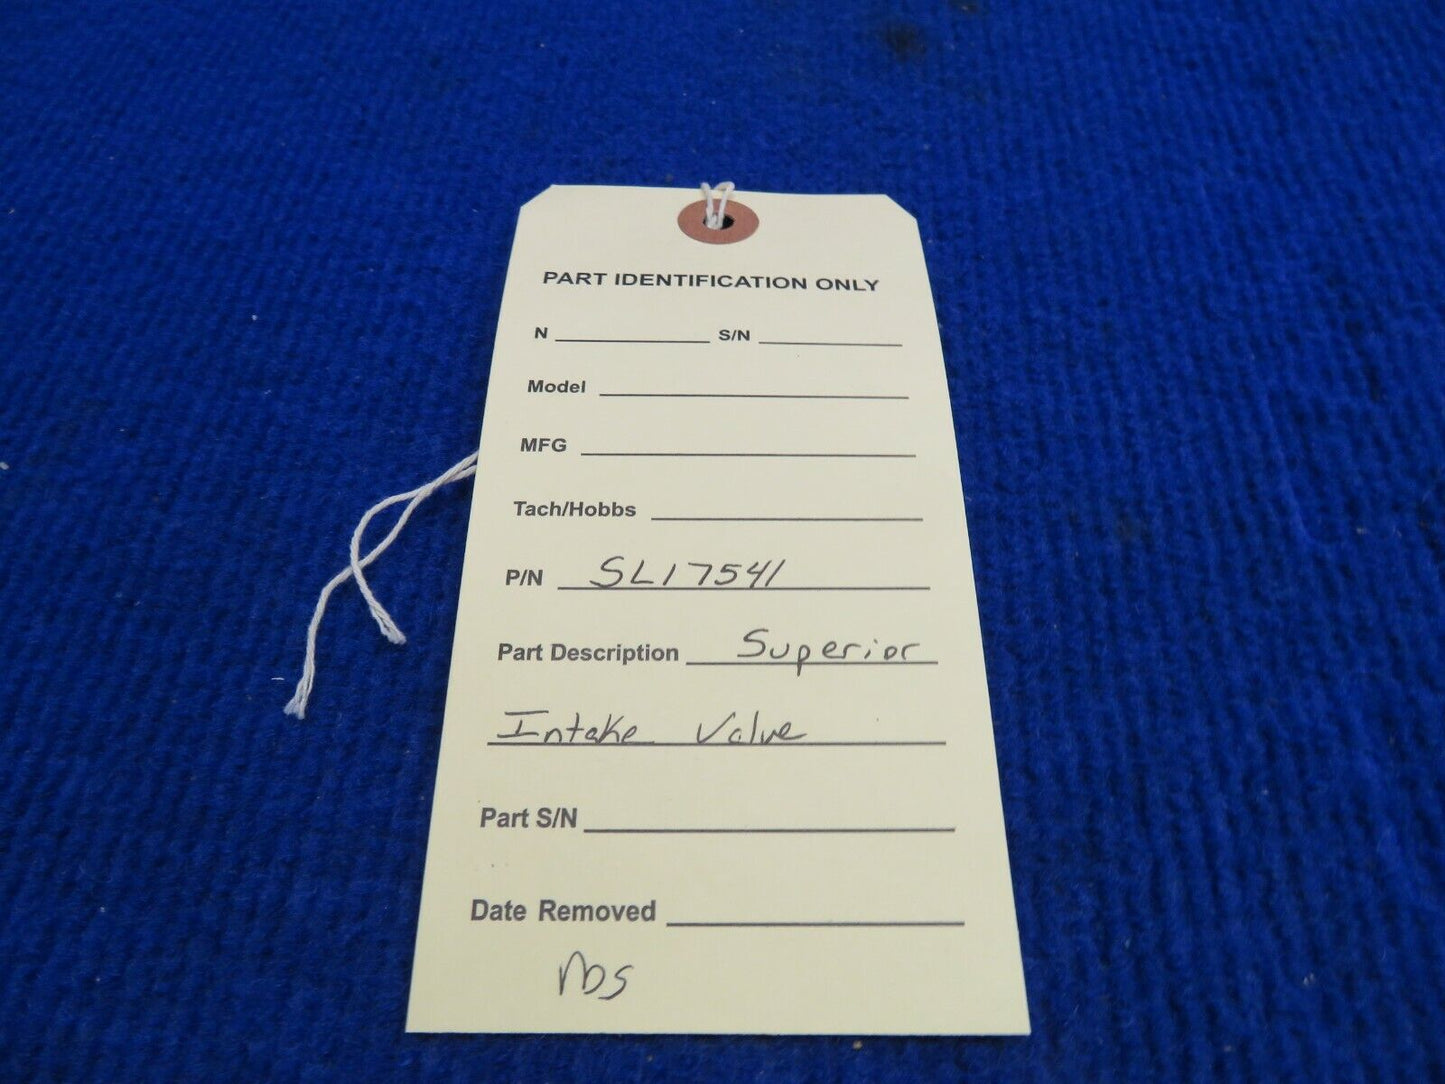 PART IDENTIFICATION ONLY
N S/N
Model
MFG
Tach/Hobbs
P/N SL17541
Part Description Superior
Intake Valve
Part S/N
Date Removed
NOS